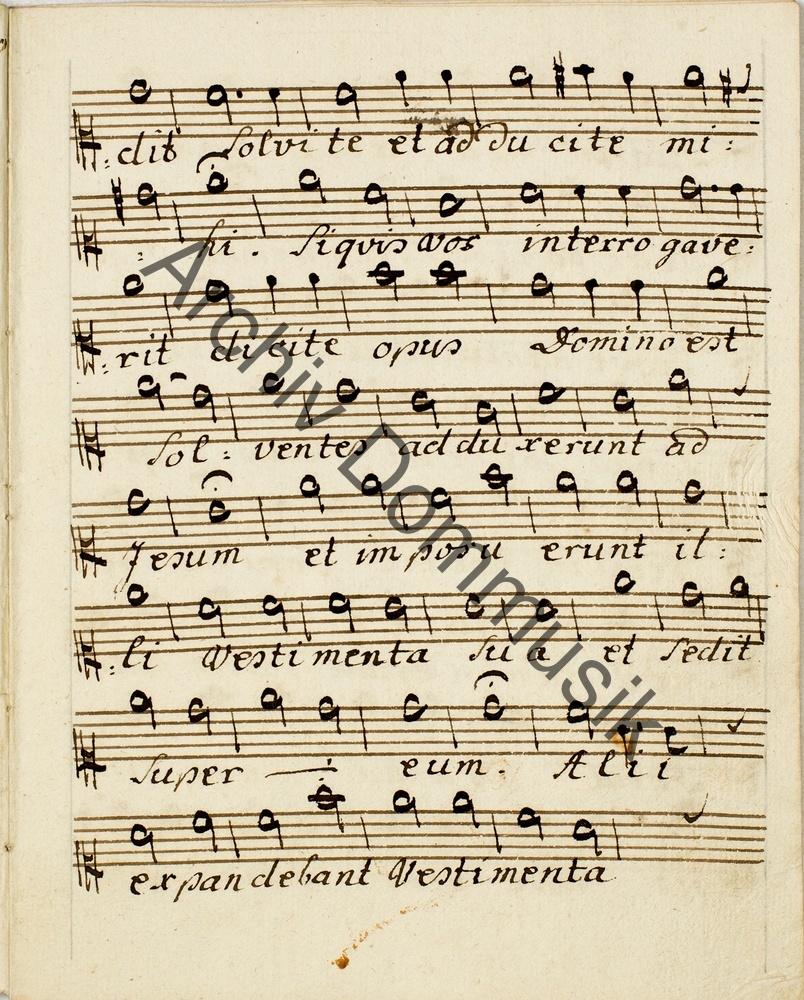 : dit Solvi te et ad du cite mi :
: hi . Siquis vos interro gave :
: rit dicite opus Domino est
Sol : ventes ad du xerunt ad
Jesum et im posu erunt il :
: li Vesti menta su a et sedit
Super eum . Alii
expandebant Vestimenta
Archiv Dommusik